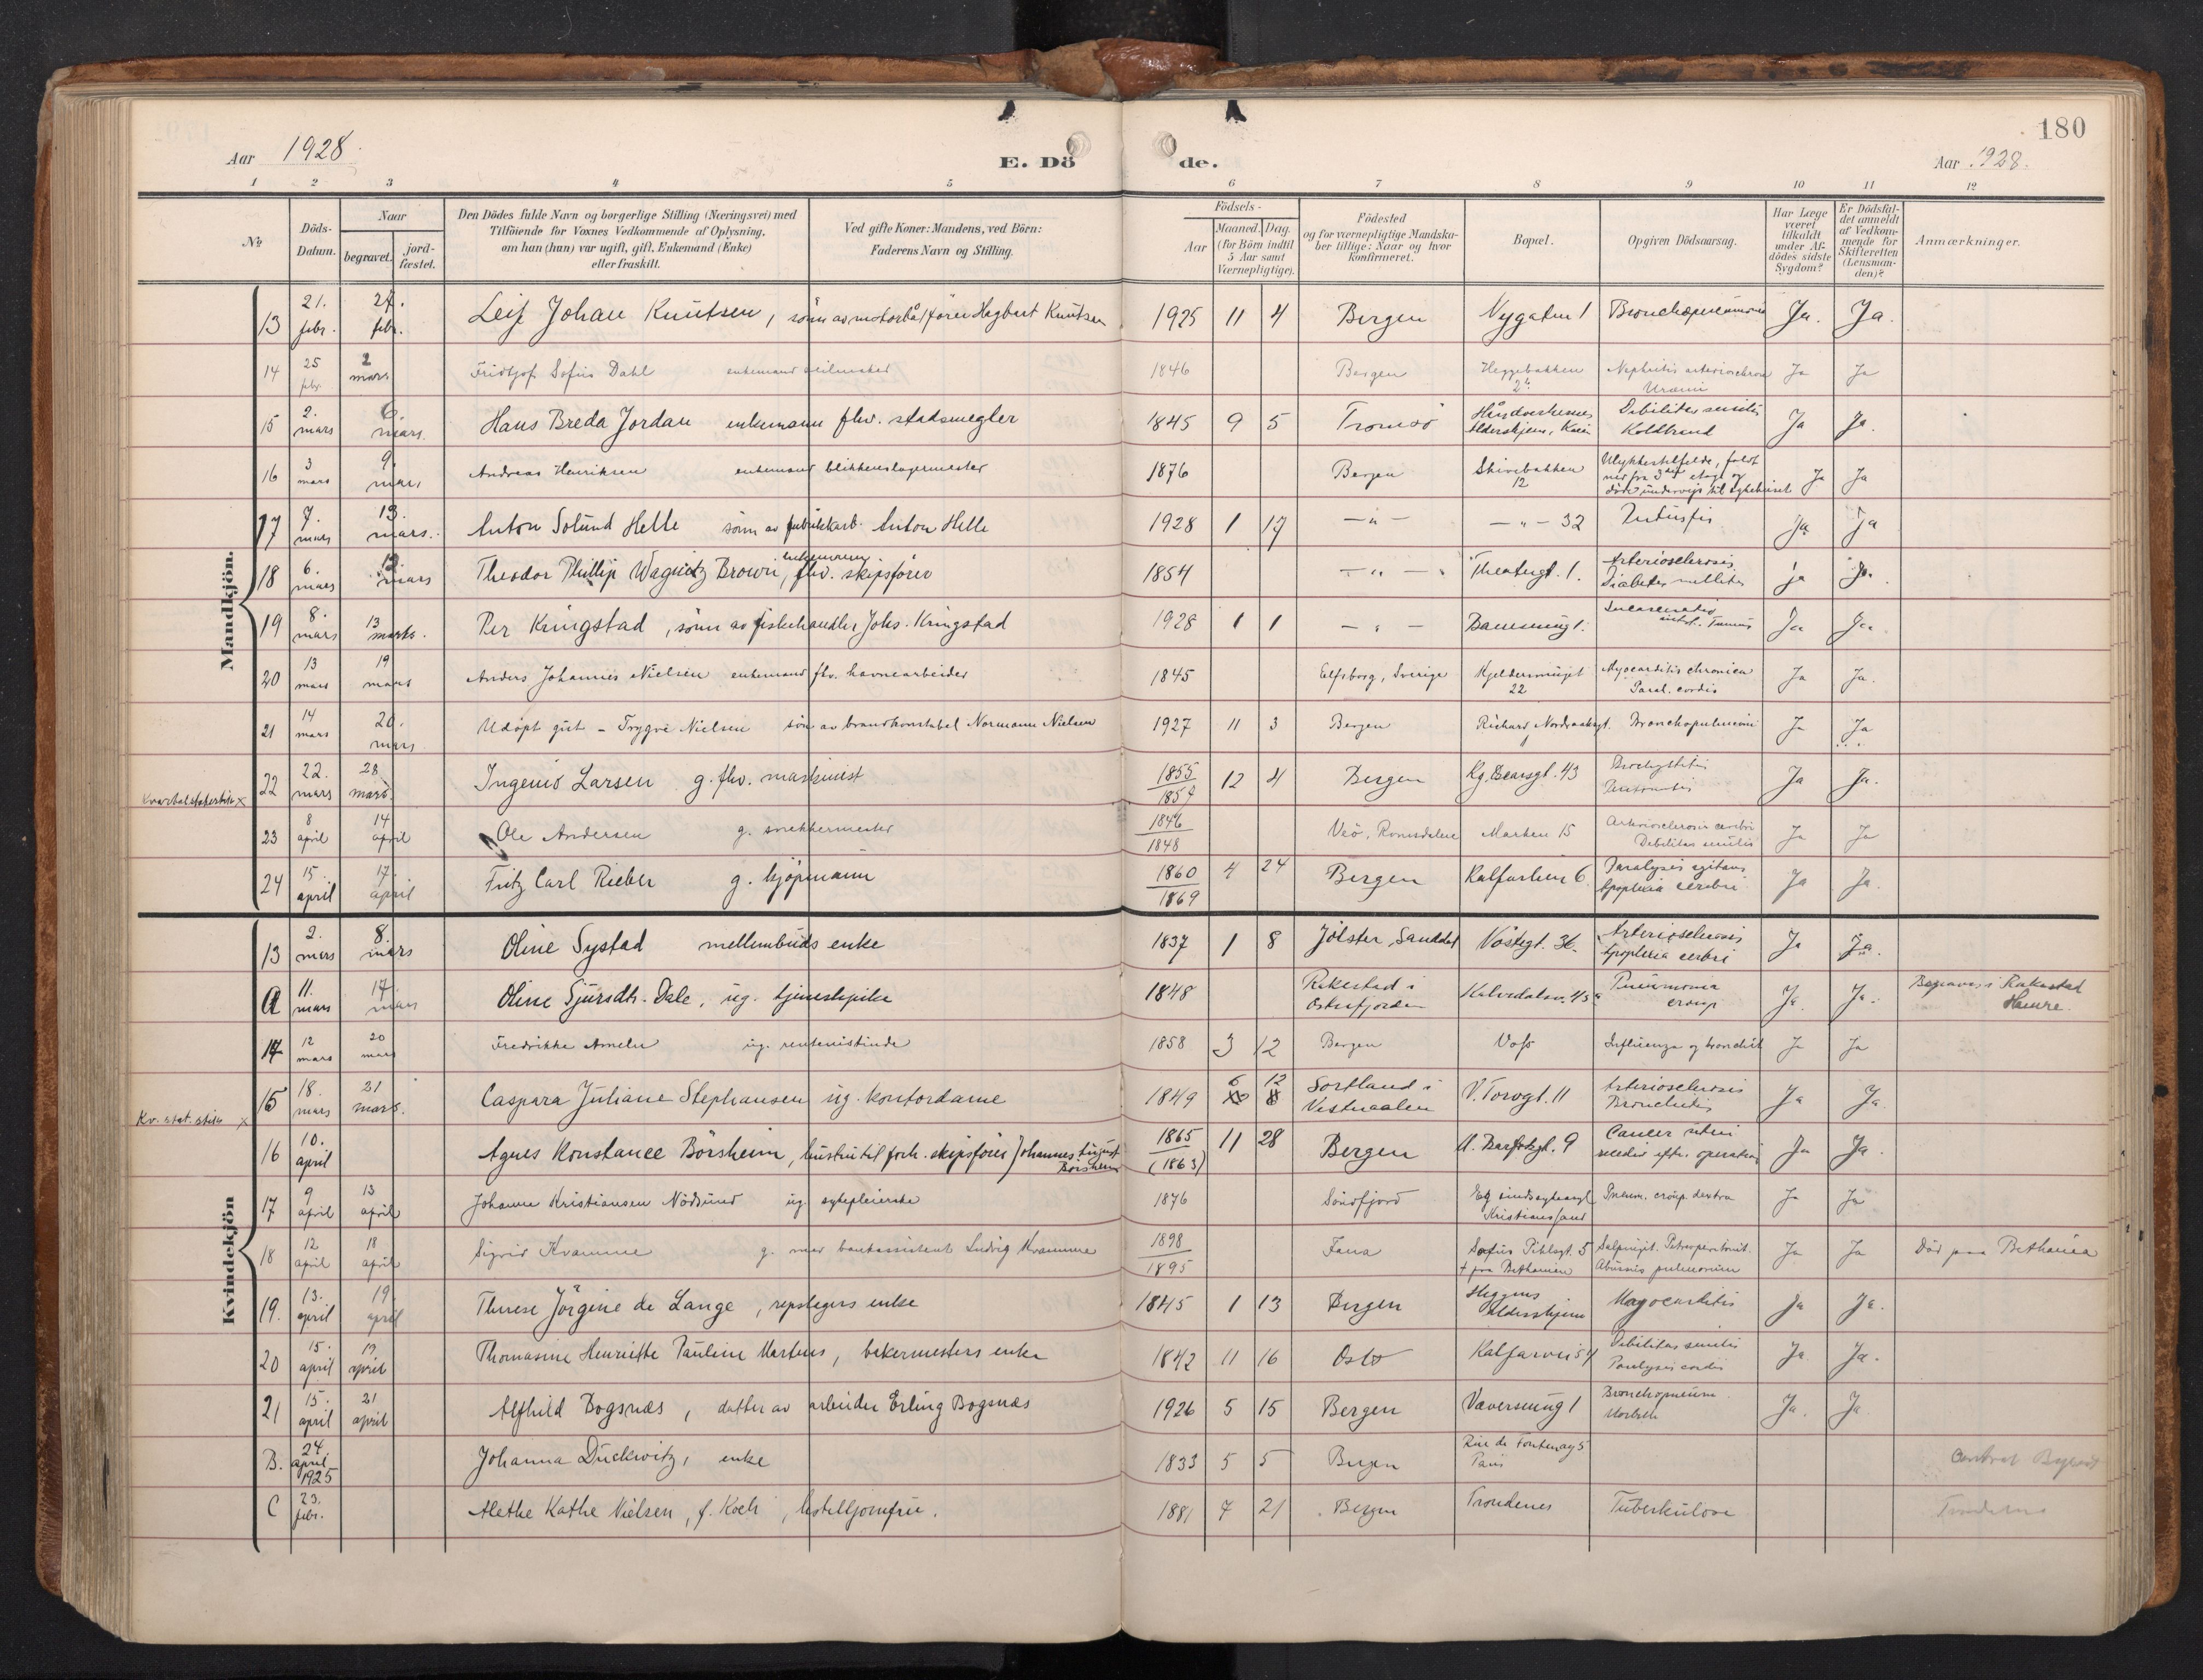 180
Aar 1928.
E. Dö de.
Aar 1928.
1 2 3 4 5 6 7 8 9 10 11 12
No
Döds-Datum.
Naar
begravet.
jord-fæstet.
Den Dödes fulde Navn og borgerlige Stilling (Næringsvei) med
Tilföiende for Voxnes Vedkommende af Oplysning,
om han (hun) var ugift, gift, Enkemand (Enke)
eller fraskilt.
Ved gifte Koner: Mandens, ved Börn:
Faderens Navn og Stilling.
Födsels-
Aar
Maaned. Dag.
(for Börn indtil
5 Aar samt
Værnepligtige).
Födested
og for værnepligtige Mandska-
ber tillige: Naar og hvor
Konfirmeret.
Bopæl.
Opgiven Dödsaarsag.
Har Læge
været
tilkaldt
under Af-
dödes sidste
Sygdom?
Er Dödsfal-
det anmeldt
af Vedkom-
mende for
Skifteretten
(Lensman-
den)?
Anmærkninger.
Mandkjön.
13 21. febr. 27. febr. Leif Johan Knutsen, sönn av motorbåtförer Hagbart Knutsen 1925 11 4 Bergen Nygaten 1 Bronchopneumoni Ja. Ja.
14 25 febr. 2 mars Fridtjof Sofus Dahl enkemand seilmaker 1846 Bergen Heggebakken Nephritis arteriosclerosa Uræmi Ja Ja
15 2. mars 6. mars. Hans Breda Jordan enkemann fhv. stadsmegler 1845 9 5 Tromsö Håndverkernes Aldershjem, Kaien Debilitas senilis Koldbrand Ja Ja.
16 3 mars 9. mars Andreas Henriksen enkemand blikkenslagermester 1876 Bergen Skivebakken 12 Ulykkestilfelde, faldt ned fra 3die etage og döde underveis til sykehuset Ja Ja
17 7. mars 13. mars. Anton Solund Helle sönn av fabrikkarb. Anton Helle 1928 1 17 — " — — " — 32 Pertussis Ja Ja
18 6. mars 12 mars Theodor Phillip Wagnitz Brown, enkemann fhv. skipsförer 1854 — " — Theatergt. 1. Arteriosclerosis Diabetes mellitus Ja Ja.
19 8. mars 13 mars. Per Kringstad, sönn av fiskehandler Johs. Kringstad 1928 1 1 — " — Bansmug 1. Incarceratio intest. Ja Ja.
20 13 mars 19 mars Anders Johannes Nielsen enkemand fhv. havnearbeider 1845 Elfsborg, Sverige Kjeldersmuget 22 Myocarditis chronica Paral. cordis Ja Ja.
21 14 mars 20. mars Udöpt gut - Trygve Nielsen sön av brandkonstabel Normann Nielsen 1927 11 3 Bergen Richard Nordraaksgt. Bronchopneumoni Ja Ja
Kvartalstatistikk x
22 22. mars 28 mars. Ingenio Larsen g. fhv. maskinist 1855 1857 12 4 Bergen Kg. Oscarsgt. 43 Ja Ja.
23 8 april 14 april Ole Andersen g. snekkermester 1846 1848 Veö, Romsdalen Marken 15 Arteriosclerosis cerebri Debilitas senilis Ja Ja
24 15. april 17. april Fritz Carl Rieber g. kjöpmann 1860 1869 4 24 Bergen Kalfarlien 6 Paralysis agitans Apoplexia cerebri Ja Ja.
Kvindekjön
13 2. mars 8. mars Oline Systad mellembuds enke 1837 1 8 Jölster, Sanddal Vossgt. 36. Arteriosclerosis Apoplexia cerebri Ja Ja.
A 11. mars 17. mars Oline Sjursdtr. Dale, ug. tjenestepike 1848 Rikestad i Osterfjorden Kalvedalsv. 43a Pneumonia croup Ja. Ja. Begraves i Rakestad Hamre.
14 12 mars 20 mars Fredrikke Ameln ug. renteninstinde 1858 3 12 Bergen Voss Influenza og bronchit Ja Ja
Kv. stat. stikk x
15 18. mars 21 mars. Caspara Juliane Stephansen ug. kontordame 1849 6 12 Sortland i Vesteraalen V. Torvgt. 11 Arteriosclerosis Bronchitis Ja Ja
16 10. april Agnes Konstance Börsheim, hustru til forh. skipsförer Johannes August Börsheim 1865 (1863) 11 28 Bergen N. Barfotsgt. 9 Cancer uteri recidiv efter operation Ja Ja.
17 9 april 13 april Johanne Kristiansen Nödsund ug. sykepleierske 1876 Söndfjord Eg sindssykeasyl Kristiansand Pneum. croup. dextra Ja Ja
18 12 april 18 april Sigrid Kvamme g. med bankassistent Ludvig Kvamme 1898 1895 Fana Sofus Pihlsgt. 5 + paa Bethanien Salpingit. Abscessus pulmonum Ja Ja Död paa Bethania
19. 13. april 19 april Therese Jörgine de Lange, repslagers enke 1845 1 13 Bergen Heggens aldershjem Myocarditis Ja Ja.
20 15. april 19. april Thomasine Henriette Pauline Martens, bakermesters enke 1842 11 16 Oslo Kalfarvei 54 Debilitas senilis Paralysis cordis Ja Ja.
21 15. april 21 april Alfhild Bogsnæs, datter av arbeider Erling Bogsnæs 1926 5 15 Bergen Væversmug 1 Bronchopneum. Morbilli Ja. Ja
B. 24. april 1925 Johanna Duckwitz, enke 1833 5 5 Bergen Rue de Fontenay 5 Paris
C 23. febr. Alethe Kathe Nielsen, f. Koch, hotelljomfru. 1881 7 21 Bergen Trondenes Tuberkulose Trondenes